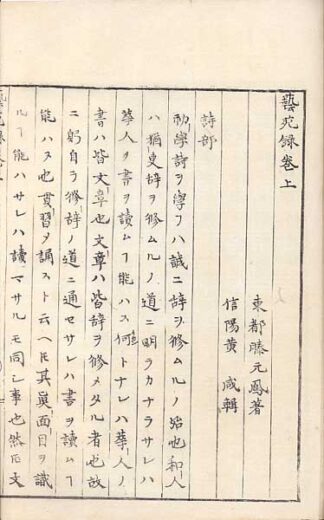 藝苑録卷上
東都滕元鳳著
信陽黄 咸輯
詩部
初學詩ヲ學フハ誠ニ辞ヲ修ムルノ始也和人
ハ猶更辞ヲ修ムルノ道ニ明ラカナラサレハ
華人ヲ書ヲ讀ムヿ能ハス何トナレハ華人ノ
書ハ皆文章也文章ハ皆辞ヲ修メタル者也故
ニ躬自ラ修辞ノ道ニ通セサレハ書ヲ讀ムヿ
能ハス也貫習メ誦スト云ヘ𪜈其眞面目ヲ識
ルヿ能ハサレハ讀マサルモ同シ事也然𪜈文
藝苑録卷上